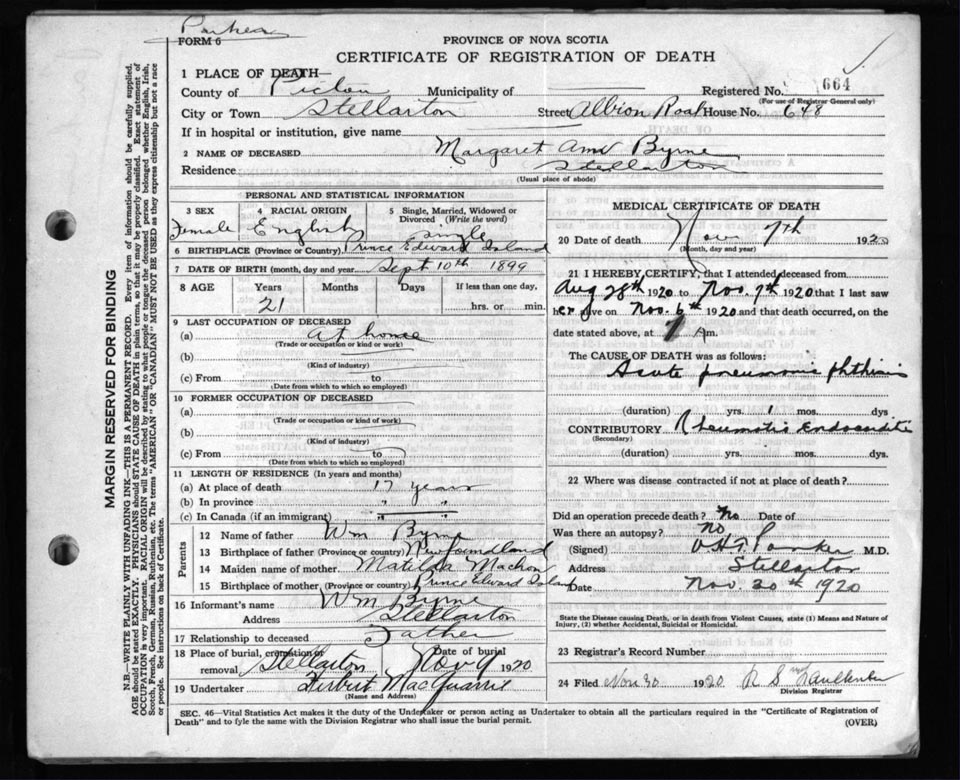 Parker
FORM 6
PROVINCE OF NOVA SCOTIA
CERTIFICATE OF REGISTRATION OF DEATH
1 PLACE OF DEATH—
County of Pictou Municipality of Registered No. 664
(For use of Registrar General only)
City or Town Stellarton Street Albion Road House No. 648
If in hospital or institution, give name
2 NAME OF DECEASED Margaret Ann Byrne
Residence Stellarton
(Usual place of abode)
PERSONAL AND STATISTICAL INFORMATION
3 SEX 4 RACIAL ORIGIN 5 Single, Married, Widowed or Divorced (Write the word)
Female English Single
6 BIRTHPLACE (Province or Country) Prince Edward Island
7 DATE OF BIRTH (month, day and year) Sept 10th 1899
8 AGE Years Months Days If less than one day,
21 hrs. or min.
9 LAST OCCUPATION OF DECEASED
(a) At home
(Trade or occupation or kind of work)
(b)
(Kind of industry)
(c) From to
(Date from which to which so employed)
10 FORMER OCCUPATION OF DECEASED
(a)
(Trade or occupation or kind of work)
(b)
(Kind of industry)
(c) From to
(Date from which to which so employed)
11 LENGTH OF RESIDENCE (In years and months)
(a) At place of death 17 years
(b) In province " "
(c) In Canada (if an immigrant) " "
Parents
12 Name of father Wm Byrne
13 Birthplace of father (Province or country) Newfoundland
14 Maiden name of mother Matilda Machon
15 Birthplace of mother (Province or country) Prince Edward Island
16 Informant's name Wm Byrne
Address Stellarton
17 Relationship to deceased Father
18 Place of burial, cremation or removal Stellarton Date of burial Nov 9 1920
19 Undertaker Herbert MacQuarrie
(Name and Address)
MEDICAL CERTIFICATE OF DEATH
20 Date of death Nov 7th 1920
(Month, day and year)
21 I HEREBY CERTIFY, that I attended deceased from
Aug 28th 1920 to Nov. 7th 1920 that I last saw
her alive on Nov. 6th 1920 and that death occurred, on the
date stated above, at 7 A m.
The CAUSE OF DEATH was as follows:
Acute pneumonic phthisis
(duration) yrs. 1 mos. dys
CONTRIBUTORY Rheumatic Endocarditis
(Secondary)
(duration) yrs. mos. dys.
22 Where was disease contracted if not at place of death?
Did an operation precede death? No Date of
Was there an autopsy? No
(Signed) Parker M.D.
Address Stellarton
Date Nov. 30th 1920
State the Disease causing Death, or in death from Violent Causes, state (1) Means and Nature of
Injury, (2) whether Accidental, Suicidal or Homicidal.
23 Registrar's Record Number
24 Filed Nov 30 1920 R S
Division Registrar
SEC. 46—Vital Statistics Act makes it the duty of the Undertaker or person acting as Undertaker to obtain all the particulars required in the "Certificate of Registration of
Death" and to fyle the same with the Division Registrar who shall issue the burial permit.
(OVER)
MARGIN RESERVED FOR BINDING
N.B.—WRITE PLAINLY WITH UNFADING INK—THIS IS A PERMANENT RECORD. Every item of information should be carefully supplied.
AGE should be stated EXACTLY. PHYSICIANS should STATE CAUSE OF DEATH in plain terms, so that it may be properly classified. Exact statement of
OCCUPATION is very important. RACIAL ORIGIN will be described by stating to what people or tongue the deceased person belonged whether English, Irish,
Scotch, French, German, Russian, Ruthenian, etc. The terms "AMERICAN" OR "CANADIAN" MUST NOT BE USED as they express citizenship but not a race
or people. See instructions on back of Certificate.